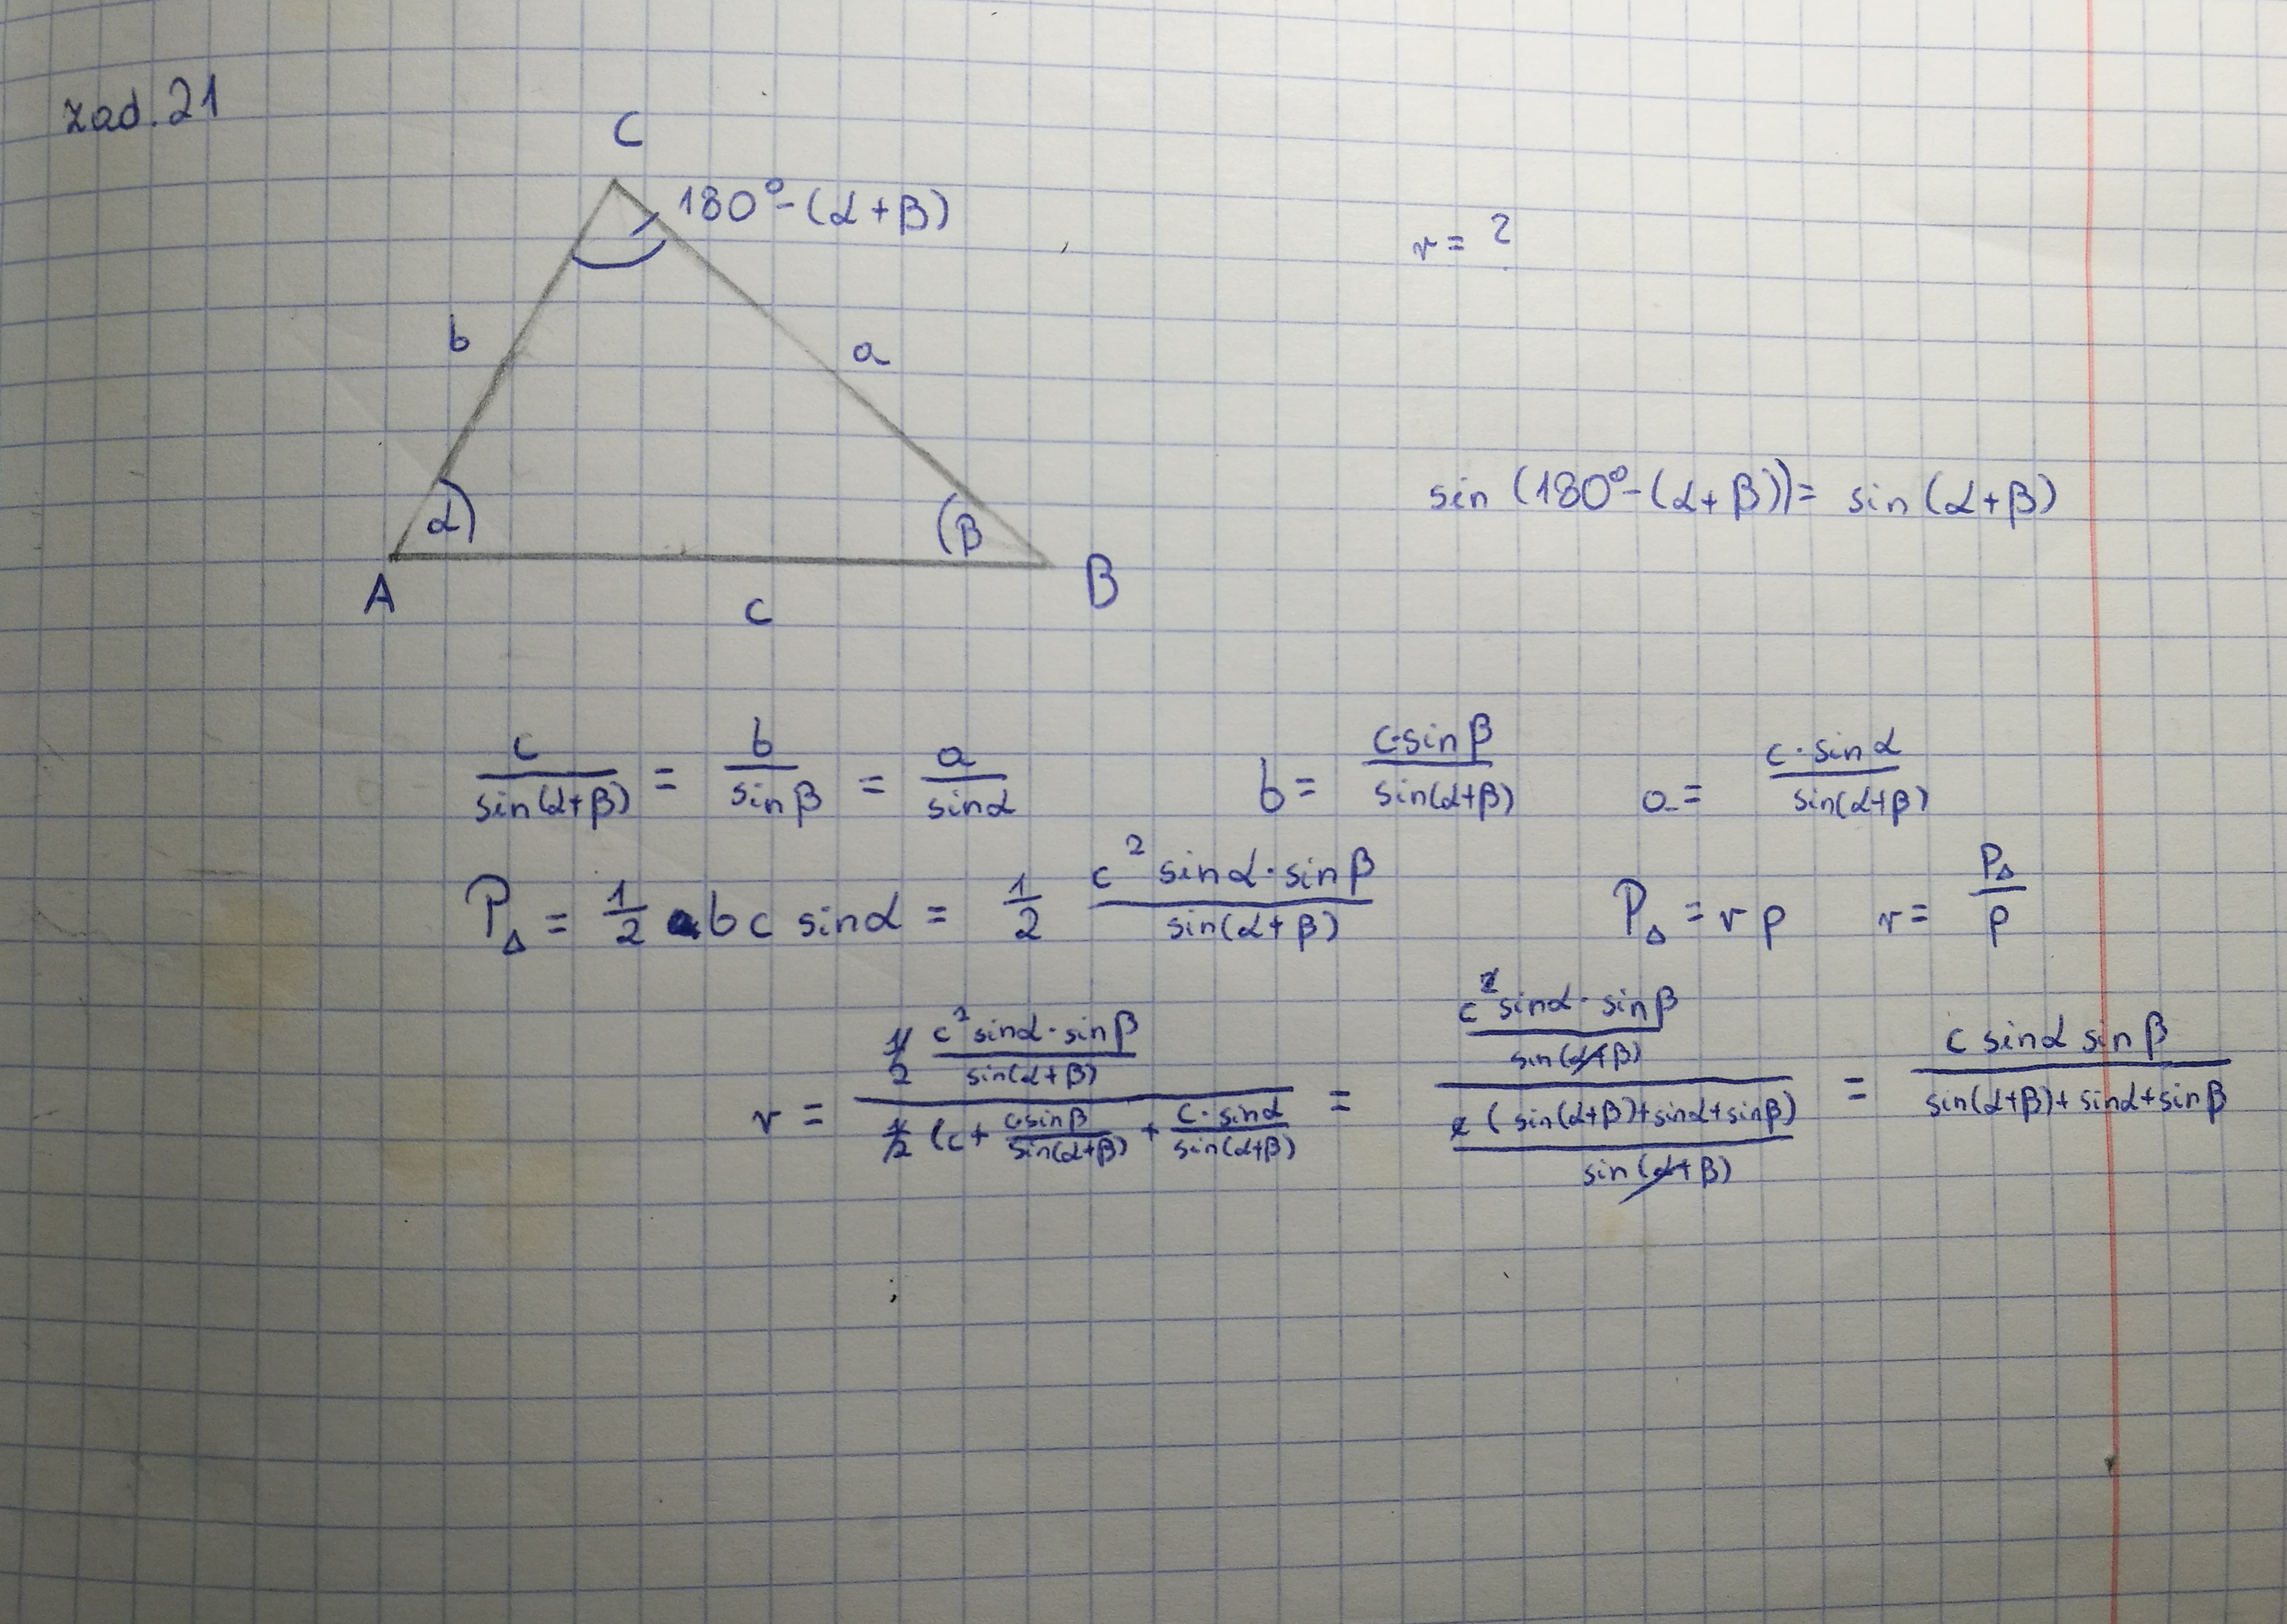 zad. 21
C
180° - (α + β)
r = ?
b
a
sin (180° - (α + β)) = sin (α + β)
α
β
A
B
c
c / sin(α+β) = b / sin β = a / sin α    b = c·sin β / sin(α+β)    a = c · sin α / sin(α+β)
P△ = 1/2 b c sin α = 1/2 c² sin α · sin β / sin(α + β)    P△ = r p    r = P△ / p
r = (1/2 c² sin α · sin β / sin(α+β)) / (1/2 (c + c·sin β / sin(α+β) + c · sin α / sin(α+β)) = (c² sin α · sin β / sin(α+β)) / (c (sin(α+β) + sin α + sin β) / sin(α+β)) = c sin α sin β / sin(α+β) + sin α + sin β